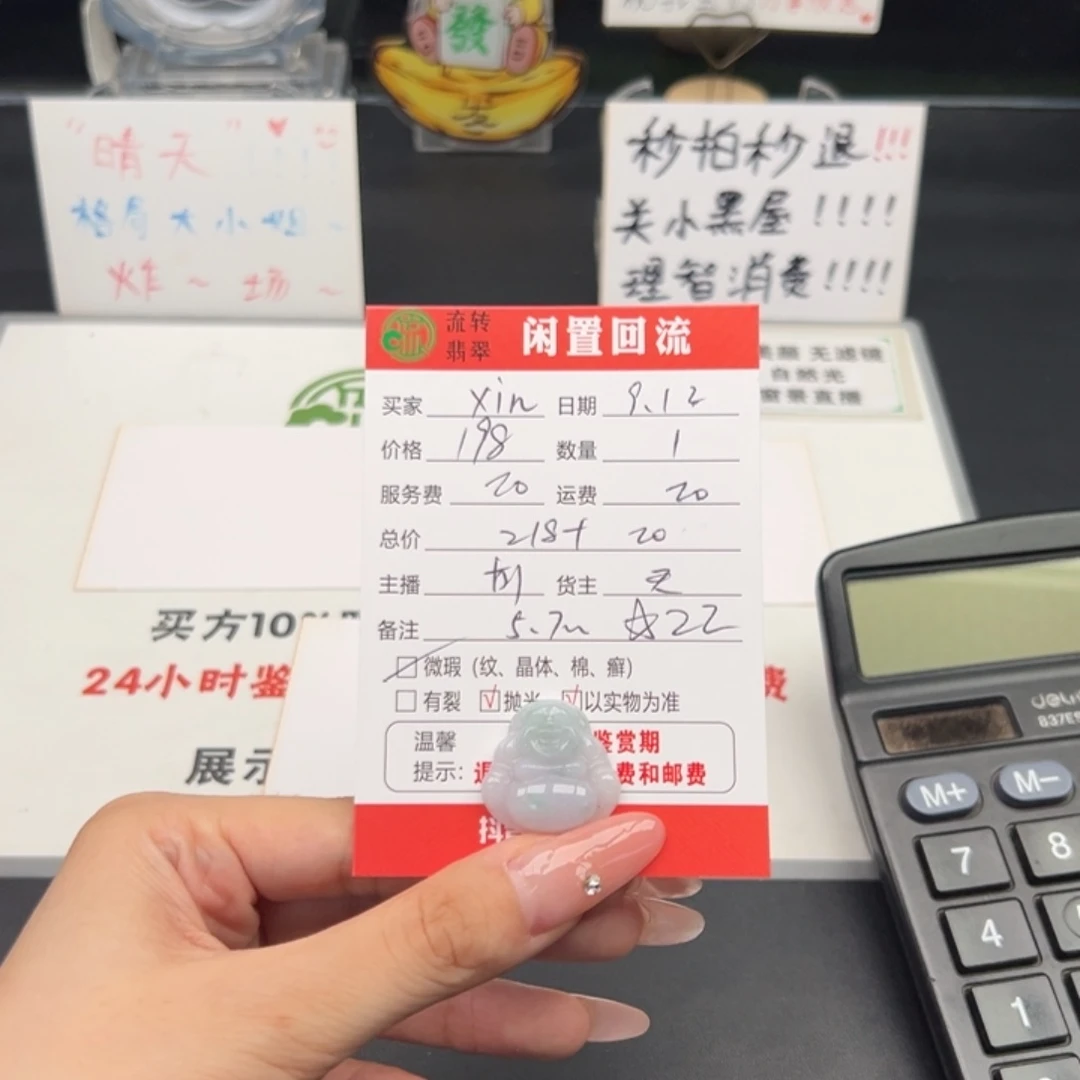 發
"晴天"
格局大小姐~
炸~场~
秒拍秒退!!!
关小黑屋!!!!
理智消费!!!!
流转
翡翠
闲置回流
无滤镜
自然光
直播
买家 xin 日期 9.12
价格 198 数量 1
服务费 20 运费 20
总价 218+ 20
主播 货主
备注 5.7 ☆22
□微瑕(纹、晶体、棉、癣)
□有裂 √抛光 √以实物为准
温馨 鉴赏期
提示: 费和邮费
买方10%
24小时鉴
展示
deli
M+ M-
7 8
4
1